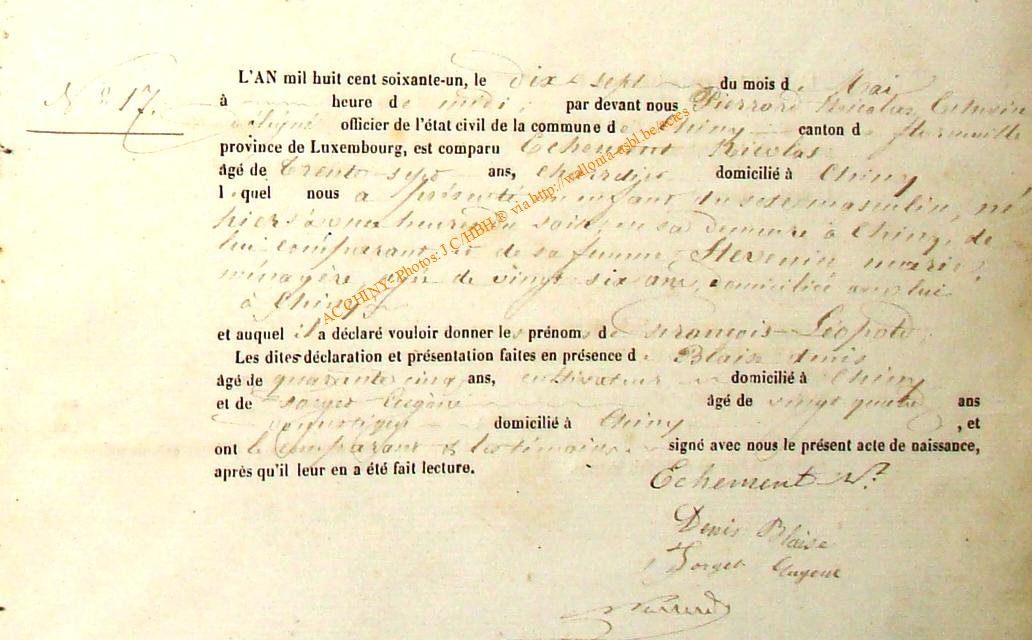 N° 17.
L'AN mil huit cent soixante-un, le dix sept du mois de Mai
à heure de midi, par devant nous Pierrard Nicolas
délégué officier de l'état civil de la commune de Chiny canton de Florenville
province de Luxembourg, est comparu Echement Nicolas
âgé de trente sept ans, domicilié à Chiny
lequel nous a présenté un enfant du sexe masculin, né
hier à une heure du soir, en sa demeure à Chiny, de
lui comparant et de sa femme Stevenin marie
ménagère âgée de vingt six ans, domiciliée avec lui
à Chiny
et auquel il a déclaré vouloir donner les prénoms de francois Léopold,
Les dites déclaration et présentation faites en présence de Blaise denis
âgé de quarante cinq ans, cultivateur domicilié à Chiny
et de Eugène âgé de vingt quatre ans
domicilié à Chiny , et
ont le comparant & les témoins signé avec nous le présent acte de naissance,
après qu'il leur en a été fait lecture.
Echement N.
Denis Blaise
Eugene
Pierrard
AC CHINY - Photos: J C/HBH ® via http://wallonia-asbl.be/actes